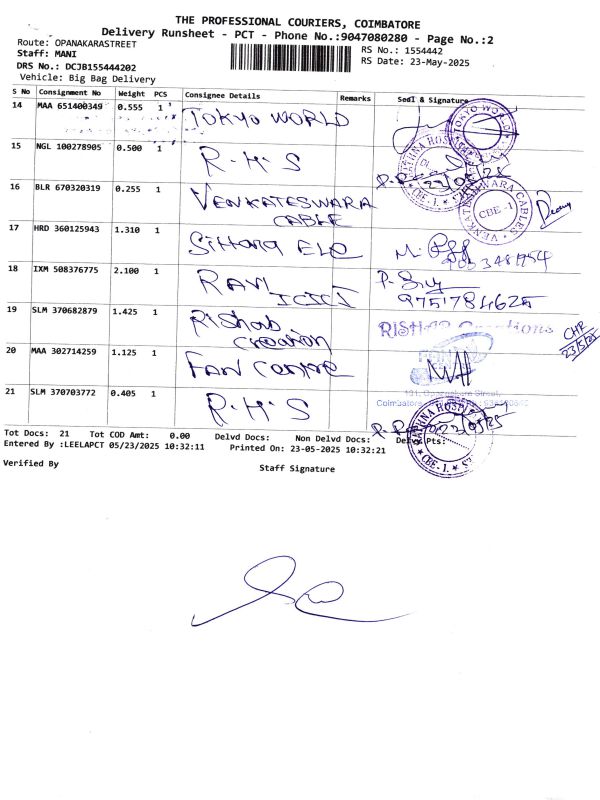 THE PROFESSIONAL COURIERS, COIMBATORE
Delivery Runsheet - PCT - Phone No.:9047080280 - Page No.:2
Route: OPANAKARASTREET
RS No.: 1554442
Staff: MANI
RS Date: 23-May-2025
DRS No.: DCJB155444202
Vehicle: Big Bag Delivery
S No Consignment No Weight PCS Consignee Details Remarks Seal & Signature
14 MAA 651400349 0.555 1 TOKYO WORLD
15 NGL 100278905 0.500 1 R.H.S
23/05/25
16 BLR 670320319 0.255 1 VENKATESWARA
CABLE
VENKATESWARA CABLES
CBE -1
17 HRD 360125943 1.310 1 Sittara Ele
18 IXM 508376775 2.100 1 RAVI
ICICI
9751784625
19 SLM 370682879 1.425 1 Rishab
Creation
RISHAB Creations
CHR
23/5/25
20 MAA 302714259 1.125 1 FAN Centre
21 SLM 370703772 0.405 1 R.H.S
Tot Docs: 21 Tot COD Amt: 0.00 Delvd Docs: Non Delvd Docs: Delvd Pts:
Entered By :LEELAPCT 05/23/2025 10:32:11 Printed On: 23-05-2025 10:32:21
Verified By
Staff Signature